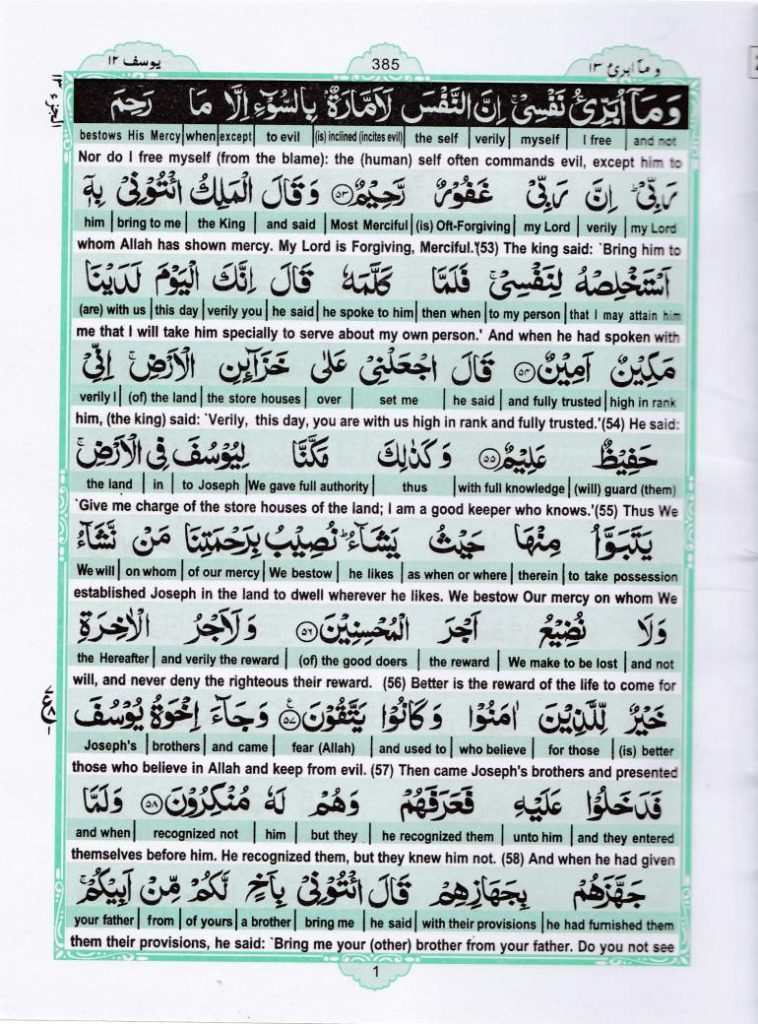 يوسف ١٢
385
وما ابرئ ١٣
وَمَآ اُبَرِّئُ نَفْسِیْ ۚ اِنَّ النَّفْسَ لَاَمَّارَةٌۢ بِالسُّوْٓءِ اِلَّا مَا رَحِمَ
bestows His Mercy | when | except | to evil | (is) inclined (incites evil) | the self | verily | myself | I free | and not
Nor do I free myself (from the blame): the (human) self often commands evil, except him to
رَبِّیْ ؕ اِنَّ رَبِّیْ غَفُوْرٌ رَّحِيْمٌ ۝۵۳ وَقَالَ الْمَلِكُ ائْتُوْنِیْ بِهٖٓ
him | bring to me | the King | and said | Most Merciful | (is) Oft-Forgiving | my Lord | verily | my Lord
whom Allah has shown mercy. My Lord is Forgiving, Merciful.'(53) The king said: `Bring him to
اَسْتَخْلِصْهُ لِنَفْسِیْ ۚ فَلَمَّا كَلَّمَهٗ قَالَ اِنَّكَ الْيَوْمَ لَدَيْنَا
(are) with us | this day | verily you | he said | he spoke to him | then when | to my person | that I may attain him
me that I will take him specially to serve about my own person.' And when he had spoken with
مَكِيْنٌ اَمِيْنٌ ۝۵۴ قَالَ اجْعَلْنِیْ عَلٰی خَزَآئِنِ الْاَرْضِ ۚ اِنِّیْ
verily I | (of) the land | the store houses | over | set me | he said | and fully trusted | high in rank
him, (the king) said: `Verily, this day, you are with us high in rank and fully trusted.'(54) He said:
حَفِيْظٌ عَلِيْمٌ ۝۵۵ وَكَذٰلِكَ مَكَّنَّا لِيُوْسُفَ فِی الْاَرْضِ ۚ
the land | in | to Joseph | We gave full authority | thus | with full knowledge | (will) guard (them)
`Give me charge of the store houses of the land; I am a good keeper who knows.'(55) Thus We
يَتَبَوَّاُ مِنْهَا حَيْثُ يَشَآءُ ؕ نُصِيْبُ بِرَحْمَتِنَا مَنْ نَّشَآءُ
We will | on whom | of our mercy | We bestow | he likes | as when or where | therein | to take possession
established Joseph in the land to dwell wherever he likes. We bestow Our mercy on whom We
وَلَا نُضِيْعُ اَجْرَ الْمُحْسِنِيْنَ ۝۵۶ وَلَاَجْرُ الْاٰخِرَةِ
the Hereafter | and verily the reward | (of) the good doers | the reward | We make to be lost | and not
will, and never deny the righteous their reward. (56) Better is the reward of the life to come for
خَيْرٌ لِّلَّذِيْنَ اٰمَنُوْا وَكَانُوْا يَتَّقُوْنَ ۝۵۷ وَجَآءَ اِخْوَةُ يُوْسُفَ
Joseph's | brothers | and came | fear (Allah) | and used to | who believe | for those | (is) better
those who believe in Allah and keep from evil. (57) Then came Joseph's brothers and presented
فَدَخَلُوْا عَلَيْهِ فَعَرَفَهُمْ وَهُمْ لَهٗ مُنْكِرُوْنَ ۝۵۸ وَلَمَّا
and when | recognized not | him | but they | he recognized them | unto him | and they entered
themselves before him. He recognized them, but they knew him not. (58) And when he had given
جَهَّزَهُمْ بِجَهَازِهِمْ قَالَ ائْتُوْنِیْ بِاَخٍ لَّكُمْ مِّنْ اَبِيْكُمْ ۚ
your father | from | of yours | a brother | bring me | he said | with their provisions | he had furnished them
them their provisions, he said: `Bring me your (other) brother from your father. Do you not see
1